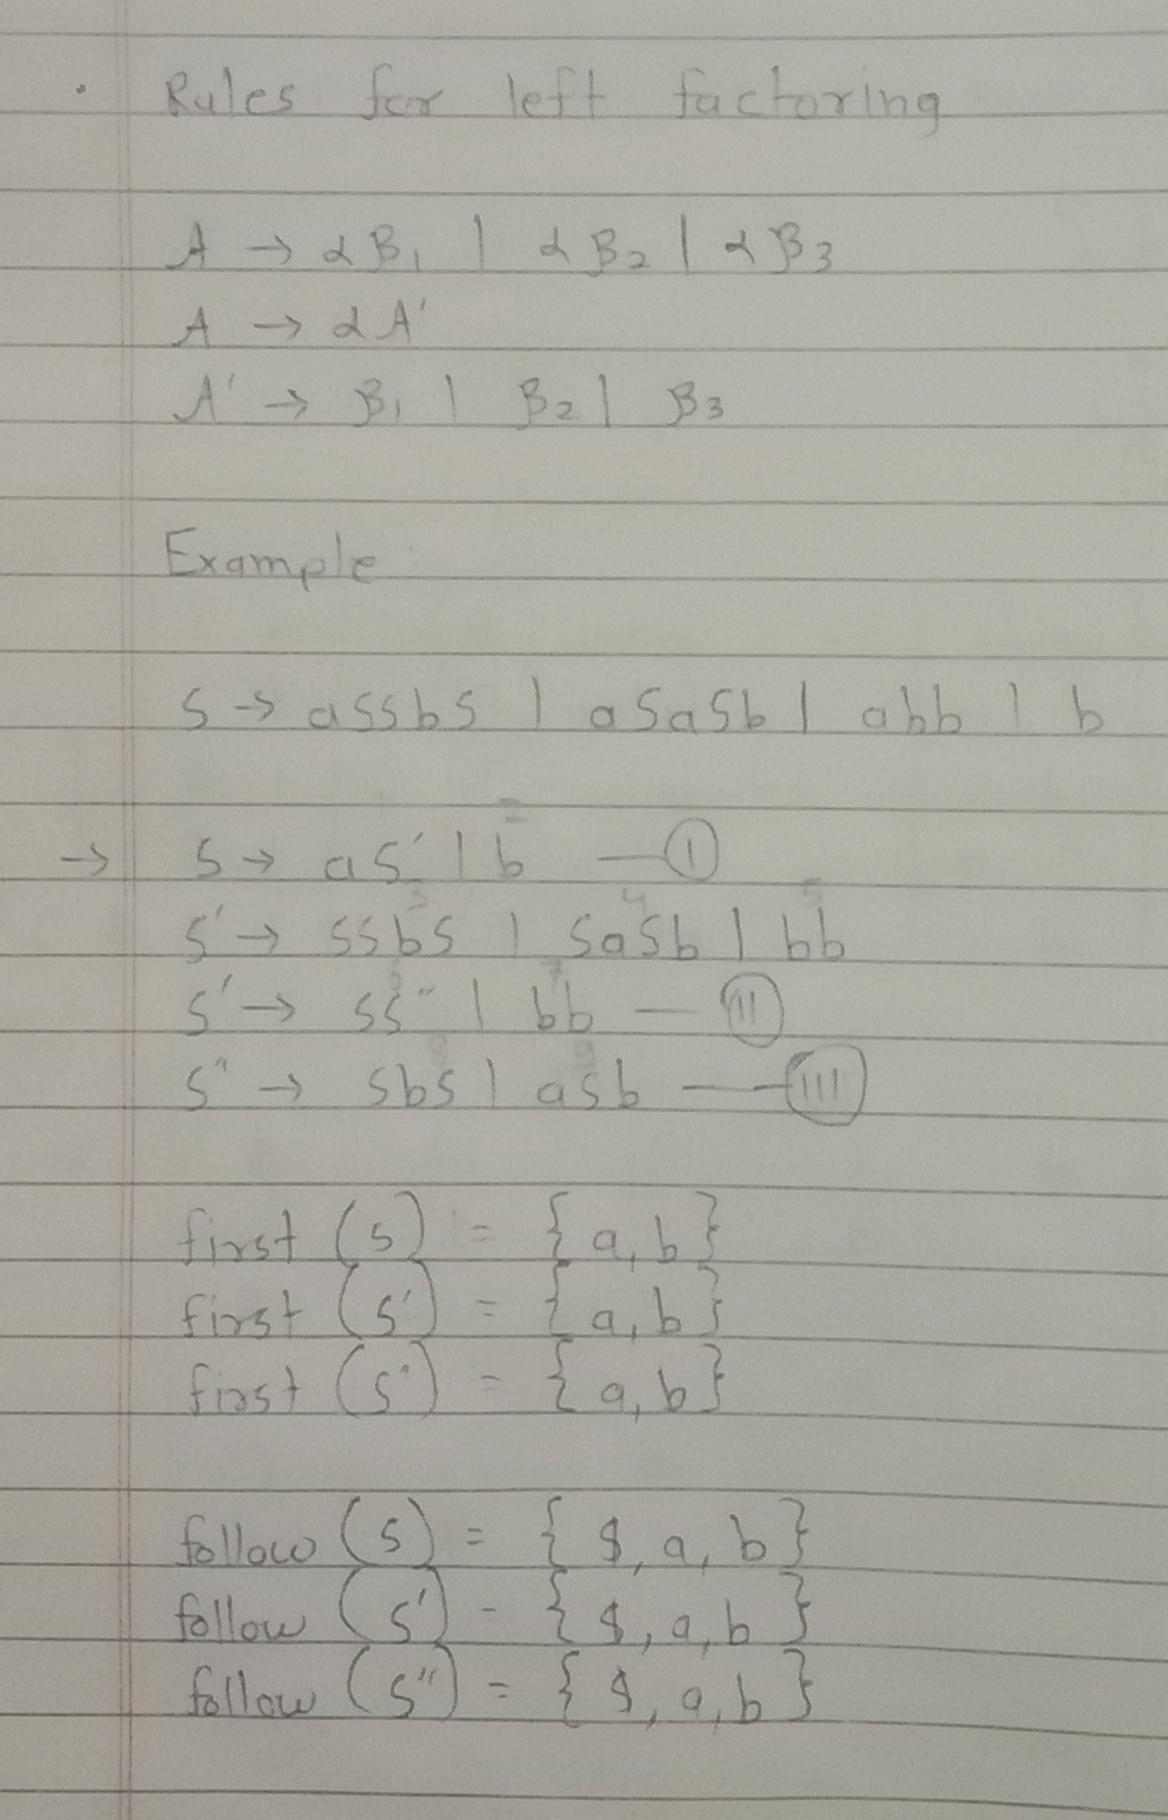 . Rules for left factoring
A → αB₁ | αB₂ | αB₃
A → αA'
A' → B₁ | B₂ | B₃
Example
S → assbs | aSaSb | abb | b
→ S → as' | b — I
S' → ssbs | sasb | bb
S' → ss" | bb — II
S" → sbs | asb — III
first (s) = {a, b}
first (s') = {a, b}
first (s") = {a, b}
follow (s) = {$, a, b}
follow (s') = {$, a, b}
follow (s") = {$, a, b}